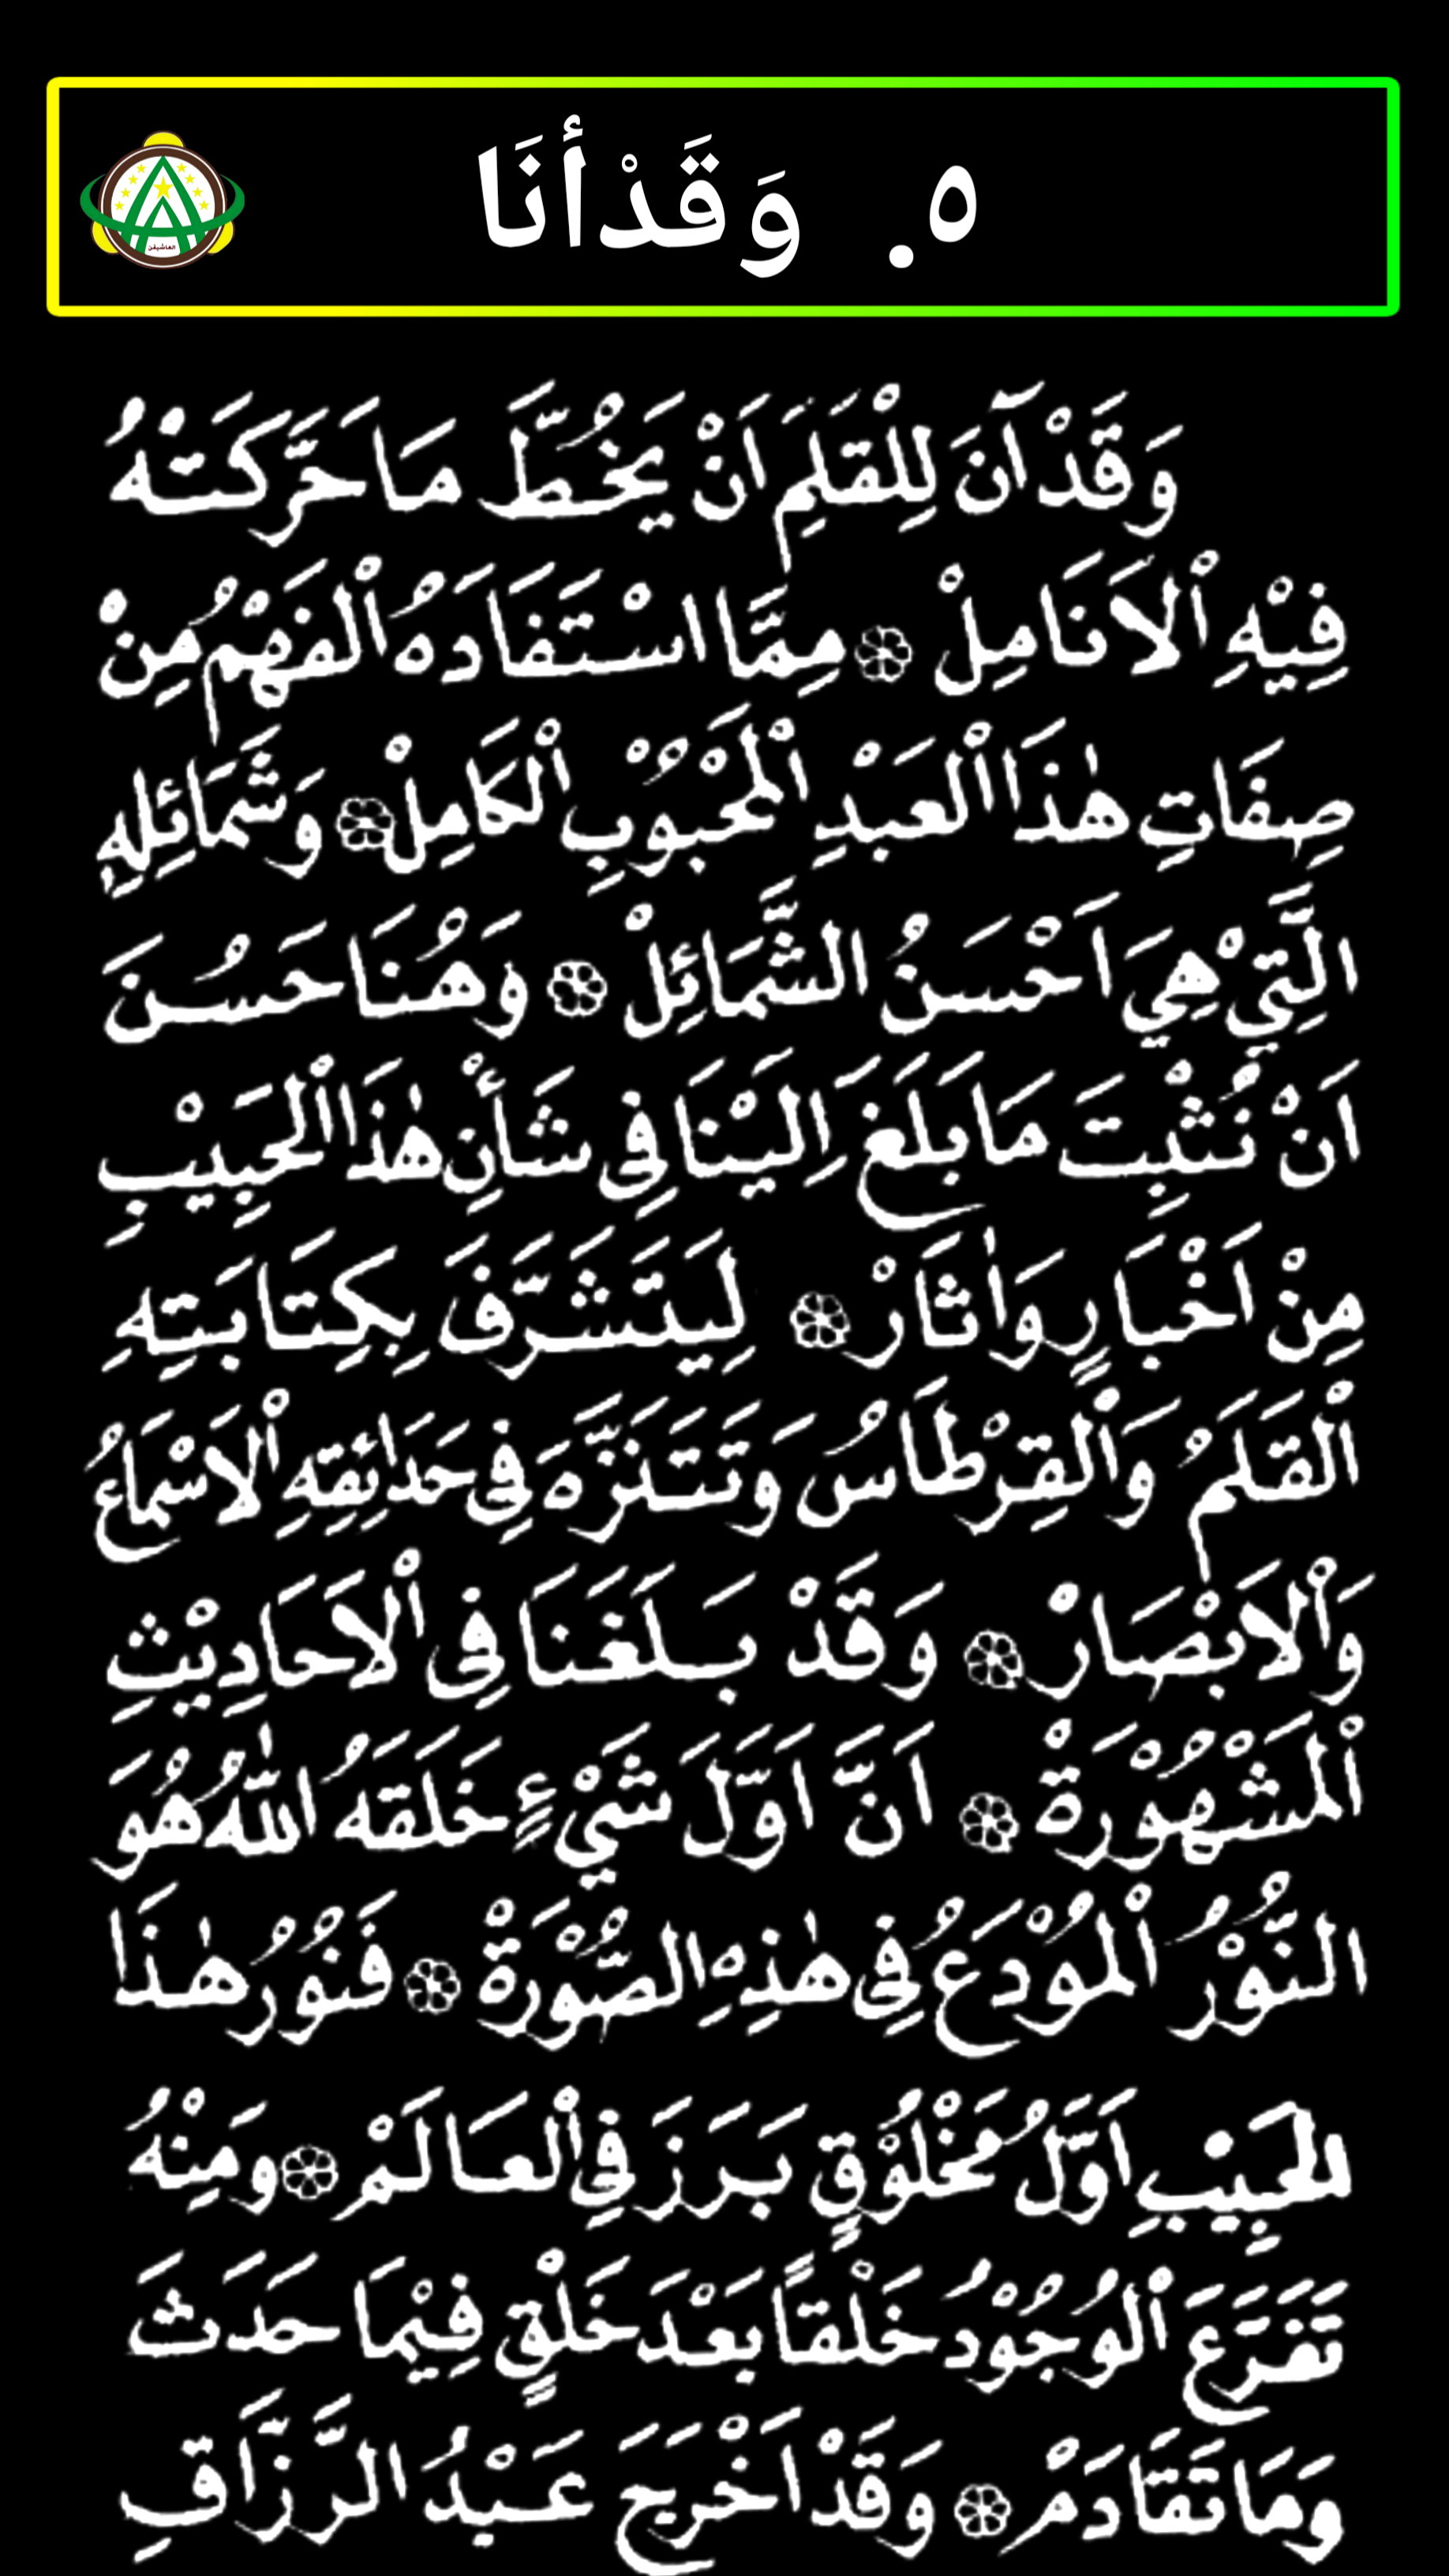 ٥. وَقَدْأنَا
العاشقين
وَقَدْآنَ لِلْقَلَمِ اَنْ يَخُطَّ مَا حَرَّكَتْهُ
فِيْهِ اْلاَنَامِلْ ۞ مِمَّا اسْتَفَادَهُ اْلفَهْمُ مِنْ
صِفَاتِ هٰذَا اْلعَبْدِ اْلمَحْبُوْبِ اْلكَامِلْ ۞ وَشَمَائِلِهِ
الَّتِيْ هِيَ اَحْسَنُ الشَّمَائِلْ ۞ وَهُنَا حَسُنَ
اَنْ نُثْبِتَ مَا بَلَغَ اِلَيْنَا فِى شَأْنِ هٰذَا اْلحَبِيْبِ
مِنْ اَخْبَارٍ وَاٰثَارْ ۞ لِيَتَشَرَّفَ بِكِتَابَتِهِ
اْلقَلَمُ وَاْلقِرْطَاسُ وَتَتَنَزَّهَ فِى حَدَائِقِهِ اْلاَسْمَاعُ
وَاْلاَبْصَارْ ۞ وَقَدْ بَلَغَنَا فِى اْلاَحَادِيْثِ
اْلمَشْهُوْرَةْ ۞ اَنَّ اَوَّلَ شَيْءٍ خَلَقَهُ اللّٰهُ هُوَ
النُّوْرُ اْلمُوْدَعُ فِى هٰذِهِ الصُّوْرَةْ ۞ فَنُوْرُ هٰذَا
الحَبِيْبِ اَوَّلُ مَخْلُوْقٍ بَرَزَ فِى اْلعَالَمْ ۞ وَمِنْهُ
تَفَرَّعَ اْلوُجُوْدُ خَلْقًا بَعْدَ خَلْقٍ فِيْمَا حَدَثَ
وَمَا تَقَادَمْ ۞ وَقَدْ اَخْرَجَ عَبْدُ الرَّزَّاقِ